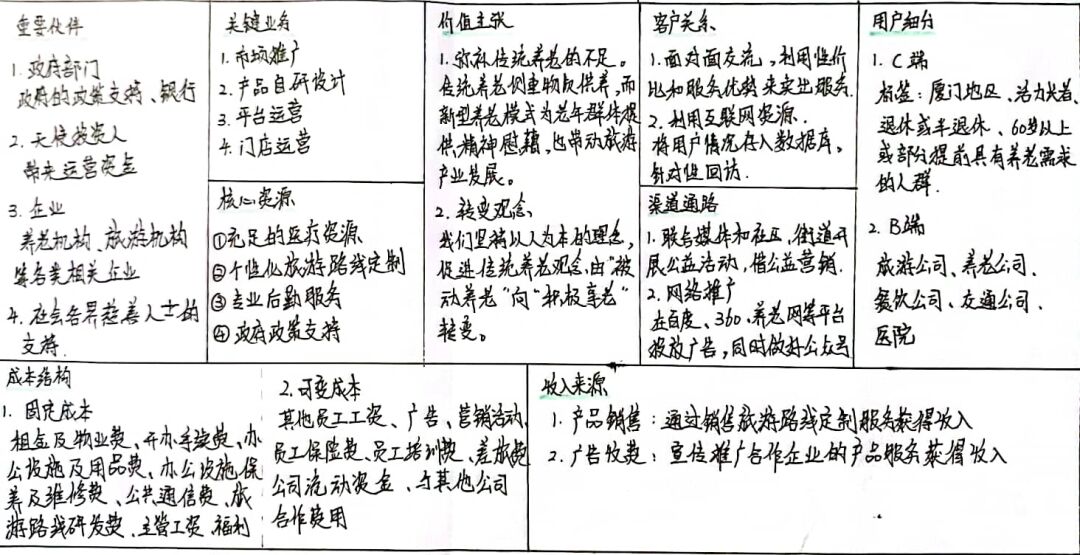 重要伙伴
1. 政府部门
政府的政策支持、银行
2. 天使投资人
带来运营资金
3. 企业
养老机构、旅游机构
等各类相关企业
4. 社会各界慈善人士的
支持.
关键业务
1. 市场推广
2. 产品自研设计
3. 平台运营
4. 门店运营
核心资源
①充足的医疗资源
②个性化旅游路线定制
③专业后勤服务
④政府政策支持
价值主张
1. 弥补传统养老的不足。
传统养老侧重物质供养,而
新型养老模式为老年群体提
供精神慰藉,也带动旅游
产业发展。
2. 转变观念
我们坚持以人为本的理念,
促进传统养老观念由“被
动养老”向“积极享老”
转变。
客户关系
1. 面对面交流,利用性价
比和服务优势来突出服务.
2. 利用互联网资源.
将用户情况存入数据库,
针对性回访.
渠道通路
1. 联合媒体和社区、街道开
展公益活动,借公益营销.
2. 网络推广
在百度、360、养老网等平台
投放广告,同时做好公众号
用户细分
1. C端
标签:厦门地区、活力老者、
退休或半退休、60岁以上
或部分提前具有养老需求
的人群.
2. B端
旅游公司、养老公司、
餐饮公司、交通公司、
医院
成本结构
1. 固定成本
租金及物业费、开办手续费、办
公设施及用品费、办公设施保
养及维修费、公共通信费、旅
游路线研发费、主管工资、福利
2. 可变成本
其他员工工资、广告、营销活动、
员工保险费、员工培训费、差旅费
公司流动资金、与其他公司
合作费用
收入来源
1. 产品销售:通过销售旅游路线定制服务获得收入
2. 广告收费:宣传推广合作企业的产品服务获得收入